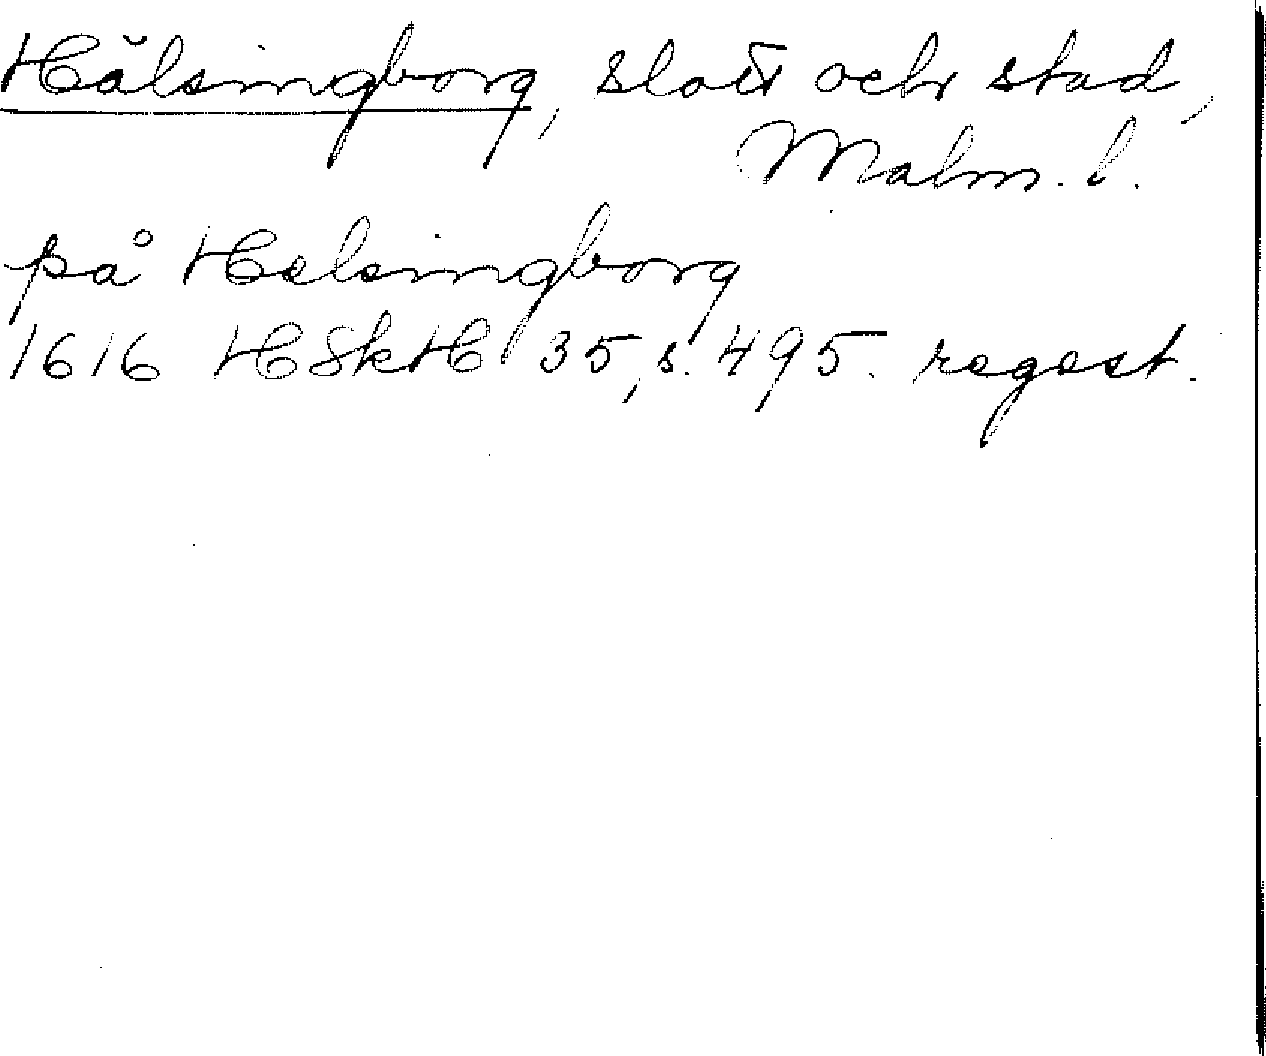 Hälsingborg, slott och stad,
Malm. l.
på Helsingborg
1616 HSkH 35, s. 495. regest.